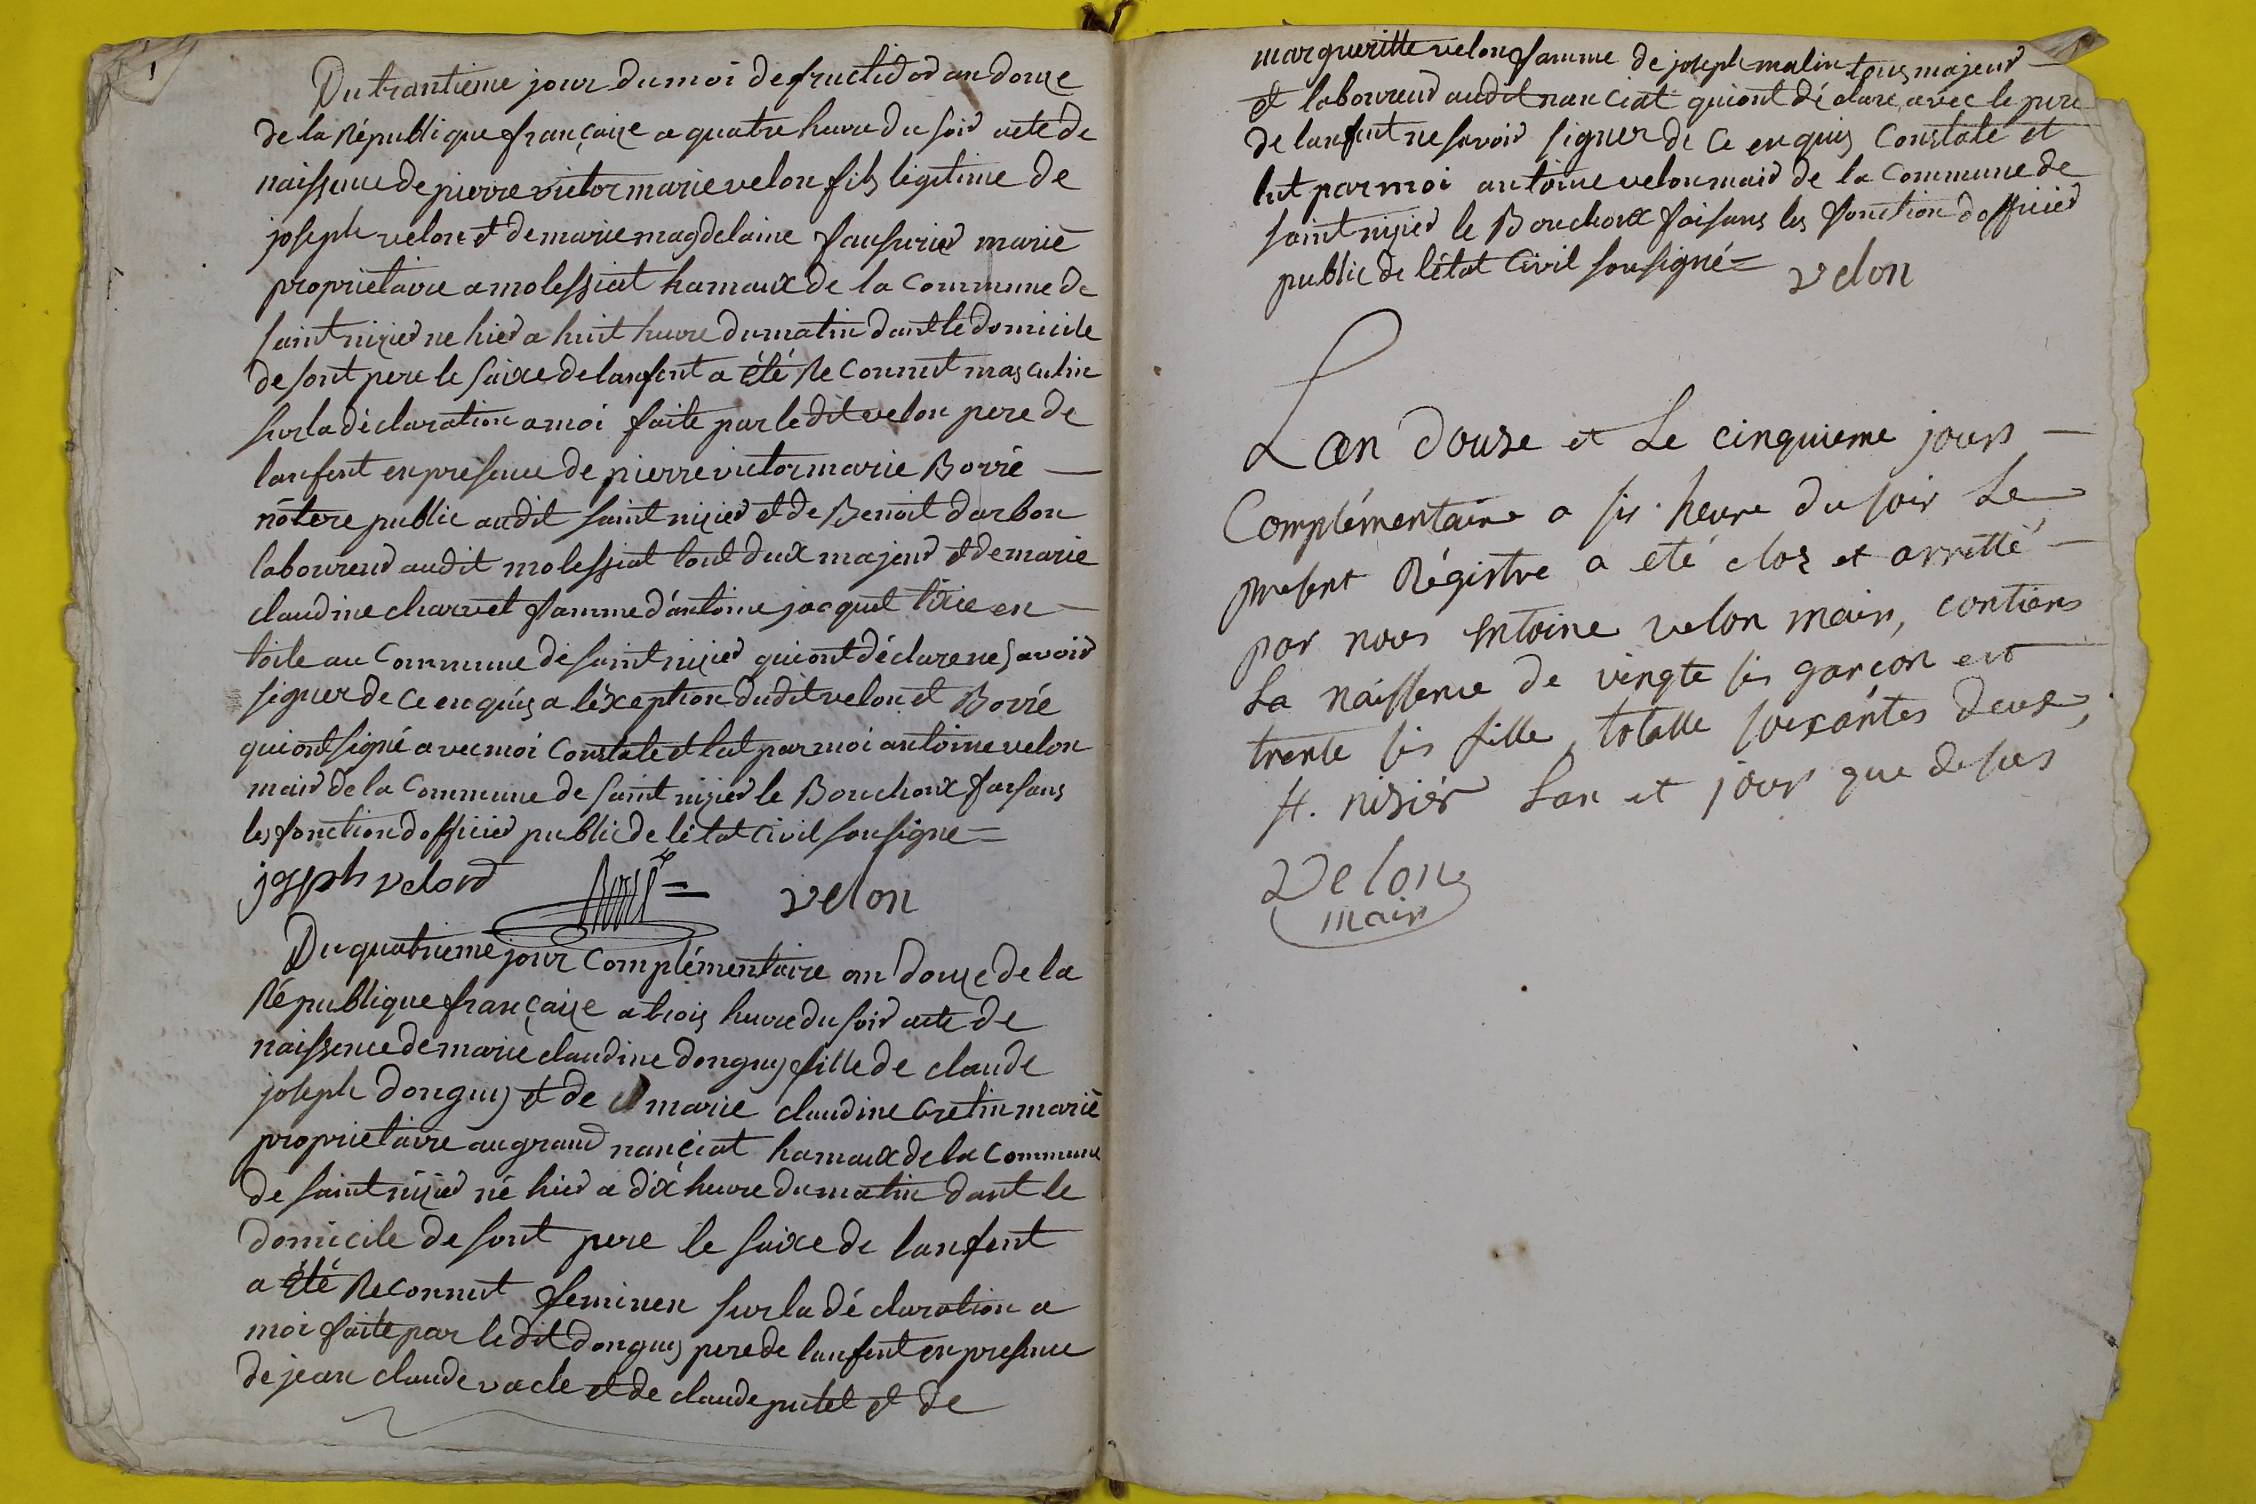 Du trantieme jour du moi de fructidor an douze
de la République française a quatre heure du soir acte de
naissence de pierre victor marie velon fils legitime de
joseph velon et de marie magdelaine faussurier marié
propriétaire a molessiat hamaux de la Commune de
saint nizier ne hier a huit heure du matin dant le domicile
de sont pere le saixe de lanfent a été Reconnut masculin
sur la déclaration a moi faite par le dit velon pere de
lanfent en presence de pierre victor marie Borré
notere public audit saint nizier et de Benoit darbon
laboureur audit molessiat tout deux majeur et de marie
claudine charvet famme d'antoine jacquet tixie en
toile au Commune de saint nizier qui ont déclare ne savoir
signer de ce enquis a léxception dudit velon et Borré
qui ont signé avec moi Constate et lut par moi antoine velon
mair de la Commune de saint nizier le Bouchoux faisans
les fonction dofficier public de létat civil sousigne =
joseph velon
Borré =
velon
Du quatrieme jour Complémentaire an douze de la
République française a trois heure du soir acte de
naissence de marie claudine donguy fille de claude
joseph donguy et de marie claudine Cretin marié
proprietaire au grand nanciat hamaux de la Commune
de saint nizier né hier a dix heure du matin dant le
domicile de sont pere le saixe de lanfent
a été Reconnut feminen sur la déclaration a
moi faite par le dit donguy pere de lanfent en presence
de jean claude vacle et de claude putet et de
margueritte velon famme de joseph malin tous majeur
et laboureur audit nanciat qui ont déclare avec le pere
de lanfent ne savoir signer de ce enquis Constate et
lut par moi antoine velon mair de la Commune de
saint nizier le Bouchoux faisans les fonction dofficier
public de létat Civil sousigné =
velon
Lan douse et Le cinquieme jours
Complémentaire a sis heure du soir Le
present Régistre a eté clos et arretté
par nous antoine velon mair, contiens
La naissence de vingte sis garçon et
trente sis fille, totalle soixantes deux,
St. nisier Lan et jour que desus
Velon
mair